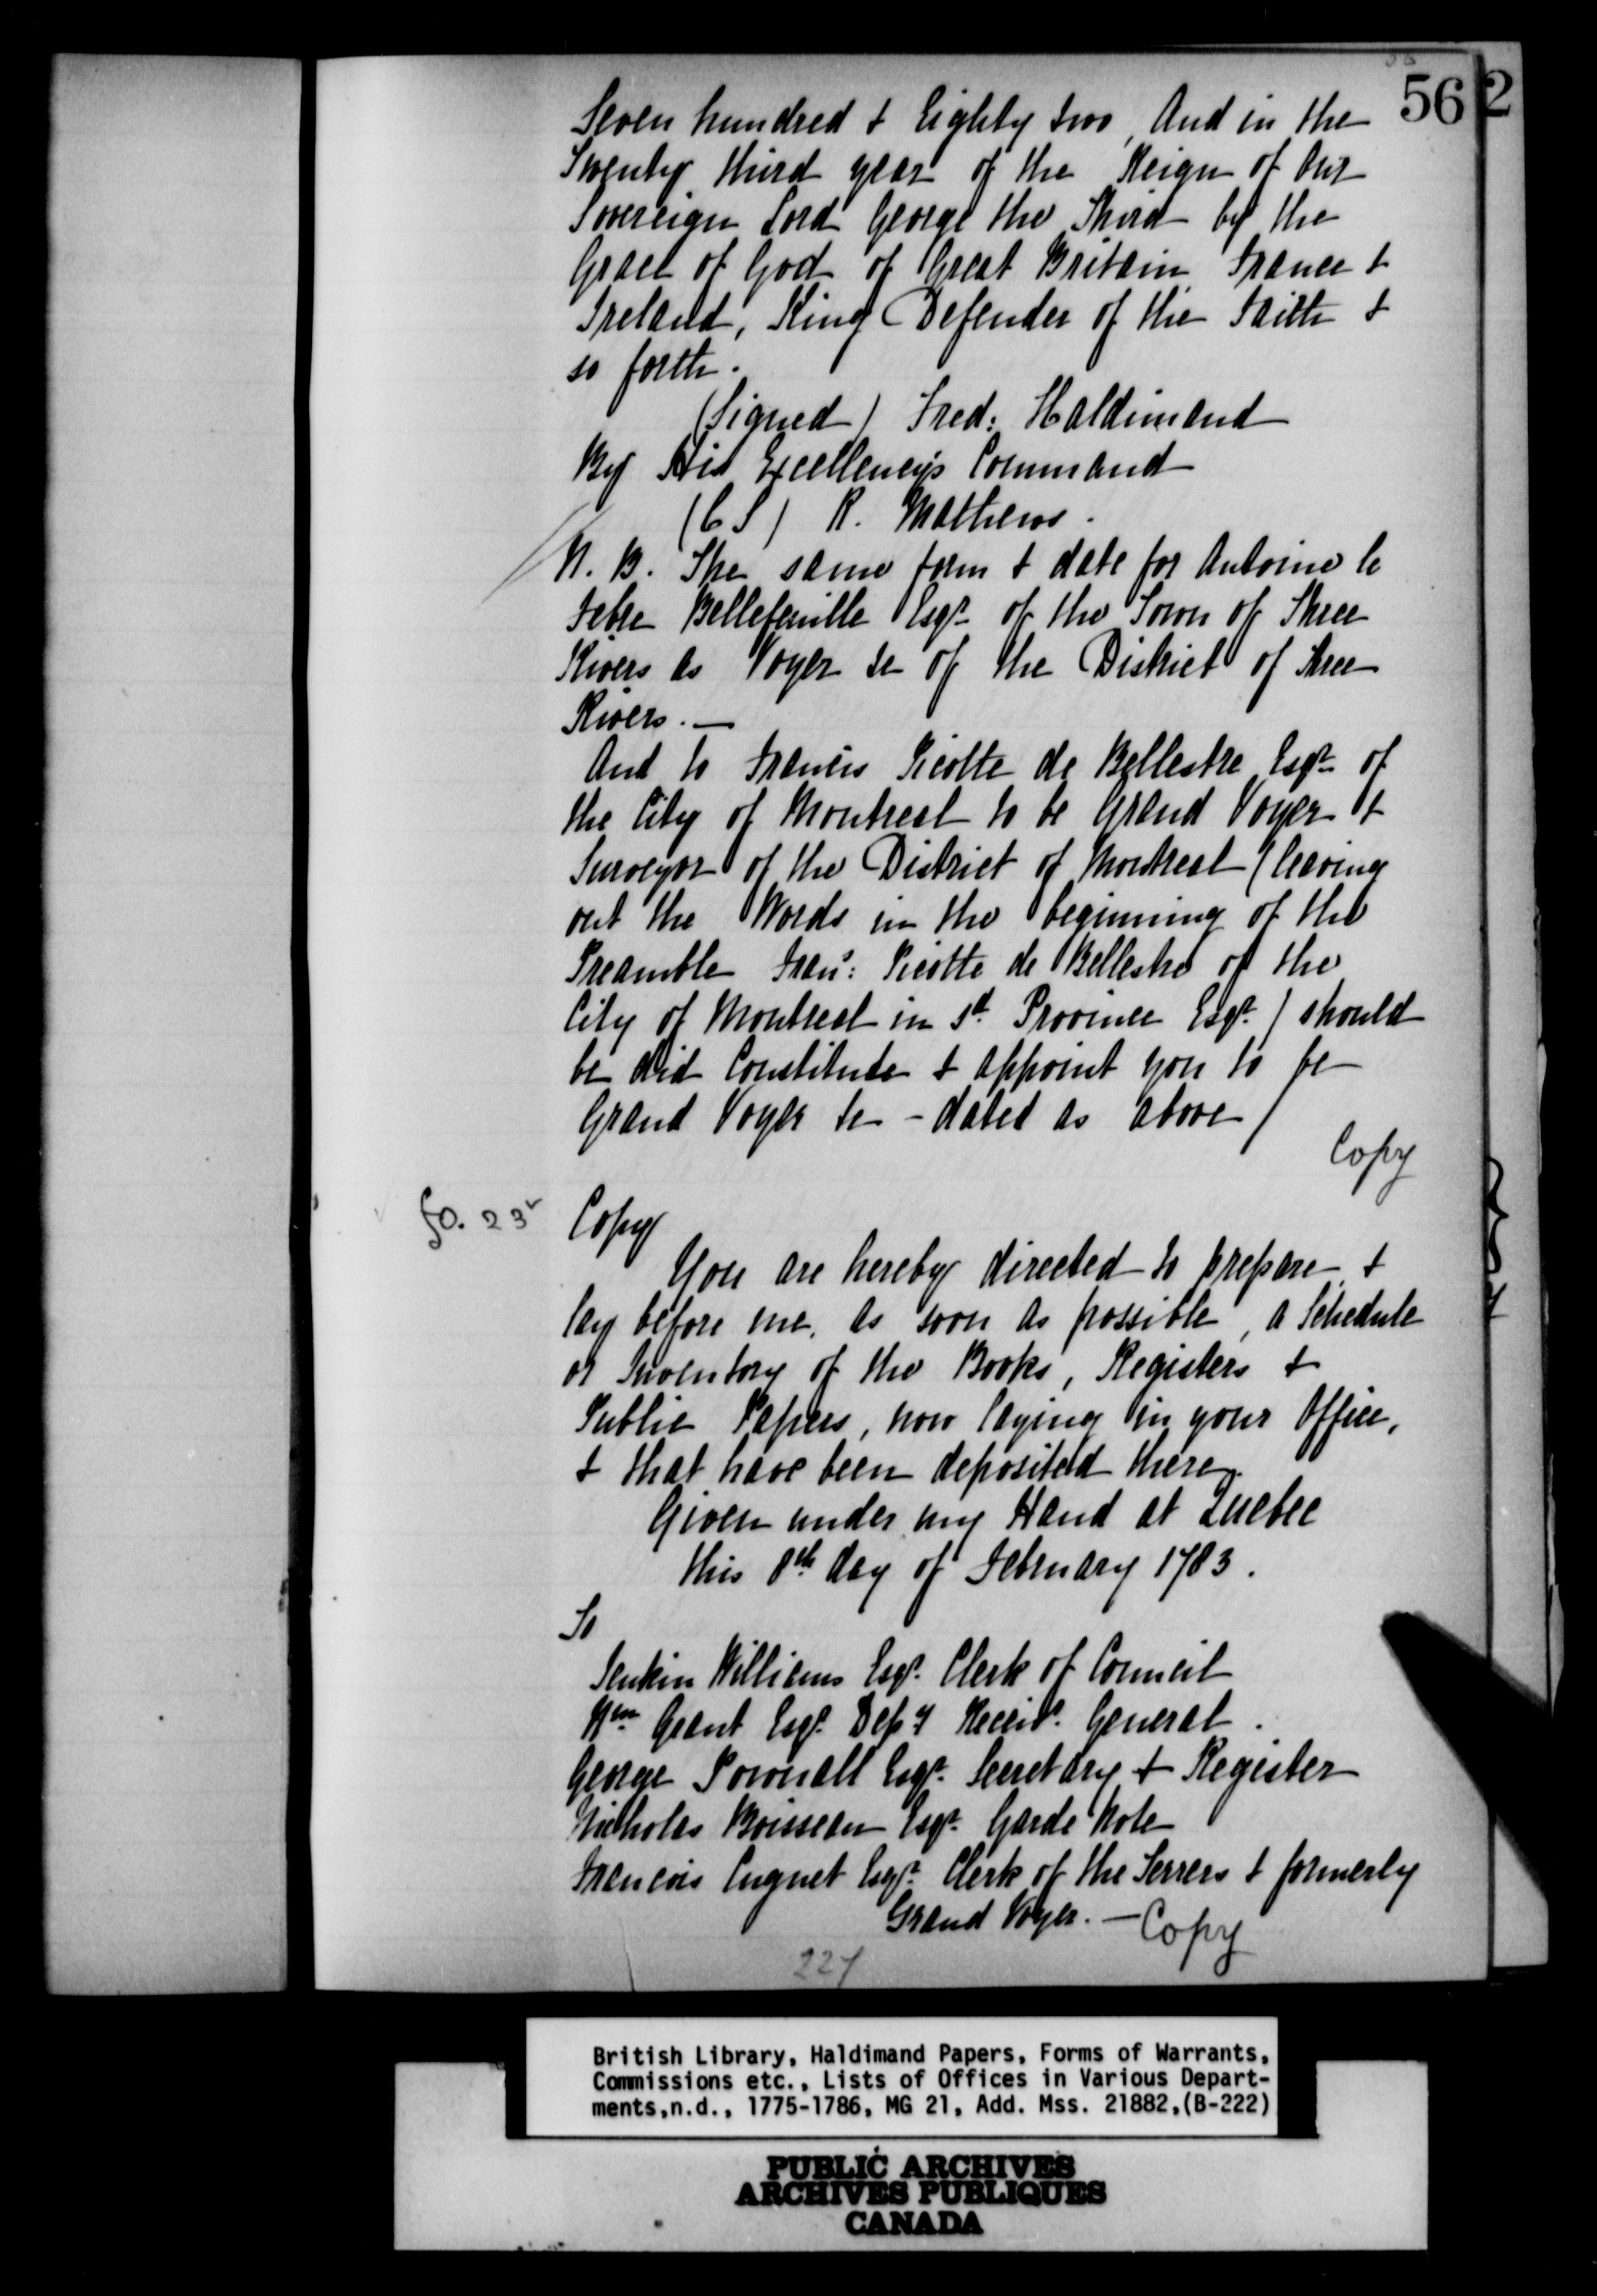 56
2
Seven hundred & Eighty two, And in the
Twenty third year of the Reign of Our
Sovereign Lord George the Third by the
Grace of God of Great Britain France &
Ireland, King Defender of the Faith &
so forth.
(Signed) Fred: Haldimand
By His Excellency's Command
(C S) R. Mathews.
N. B. The same form & date for Antoine le
Febre Bellefeuille Esqr of the Town of Three
Rivers as Voyer &c of the District of Three
Rivers. —
And to Francis Picotte de Bellestre Esqr of
the City of Montreal to be Grand Voyer &
Surveyor of the District of Montreal (leaving
out the Words in the beginning of the
Preamble Frans: Picotte de Bellestre of the
City of Montreal in sd Province Esqr) should
be did Constitute & appoint you to be
Grand Voyer &c – dated as above /
Copy
fo. 23
Copy
You are hereby directed to prepare &
lay before me, as soon as possible, a Schedule
or Inventory of the Books, Registers &
Public Papers, now laying in your Office,
& that have been deposited there.
Given under my Hand at Quebec
this 8th day of February 1783.
To
Jenkin Williams Esqr. Clerk of Council
Wm Grant Esqr. Depy Receivr. General.
George Pownall Esqr. Secretary & Register
Nicholas Boisseau Esqr. Garde Note
Francois Cugnet Esqr. Clerk of the Terrers & formerly
Grand Voyer. — Copy
224
British Library, Haldimand Papers, Forms of Warrants,
Commissions etc., Lists of Offices in Various Depart-
ments,n.d., 1775-1786, MG 21, Add. Mss. 21882,(B-222)
PUBLIC ARCHIVES
ARCHIVES PUBLIQUES
CANADA